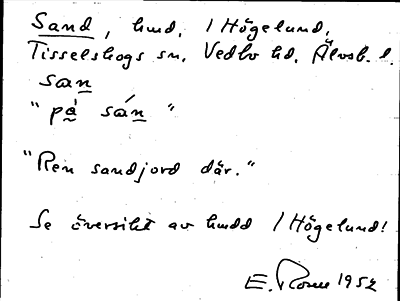 Sand, hmd, 1 Högelund,
Tisselskogs sn, Vedbo hd, Älvsb. l.
san
"på sán"
"Ren sandjord där."
Se översikt av hmdd 1 Högelund!
E. 1952